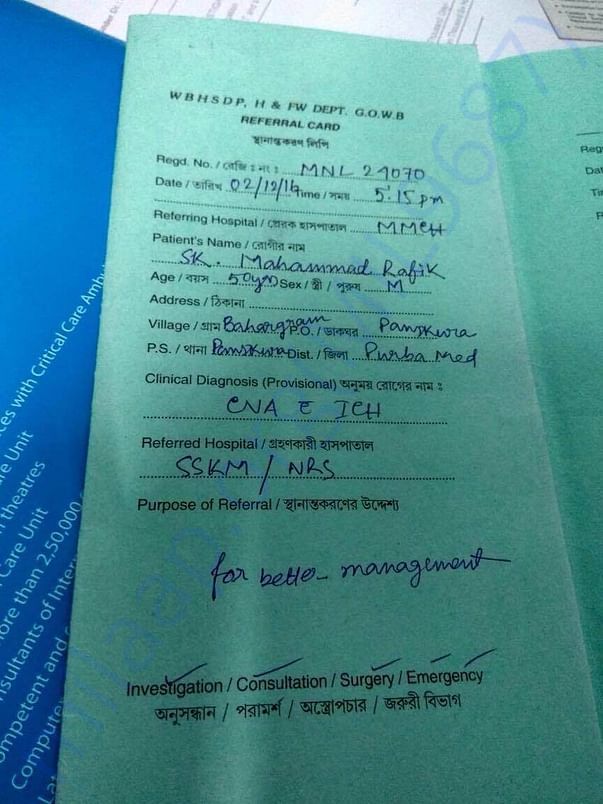 WBHSDP, H & FW DEPT. G.O.W.B
REFERRAL CARD
স্থানান্তকরণ লিপি
Regd. No. / রেজিঃ নং : MNL 29070
Date / তারিখ 02/12/16 Time / সময় 5:15 pm
Referring Hospital / প্রেরক হাসপাতাল MMCH
Patient's Name / রোগীর নাম
SK. Mahammad Rafik
Age / বয়স 50yrs Sex / স্ত্রী / পুরুষ M
Address / ঠিকানা
Village / গ্রাম Bahargram P.O. / ডাকঘর Panskura
P.S. / থানা Panskura Dist. / জিলা Purba Med
Clinical Diagnosis (Provisional) অনুময় রোগের নাম :
CVA c ICH
Referred Hospital / গ্রহণকারী হাসপাতাল
SSKM / NRS
Purpose of Referral / স্থানান্তকরণের উদ্দেশ্য
for better management
Investigation / Consultation / Surgery / Emergency
অনুসন্ধান / পরামর্শ / অস্ত্রোপচার / জরুরী বিভাগ
with Critical Care
Care Unit
theatres
Care Unit
more than 2,50,000